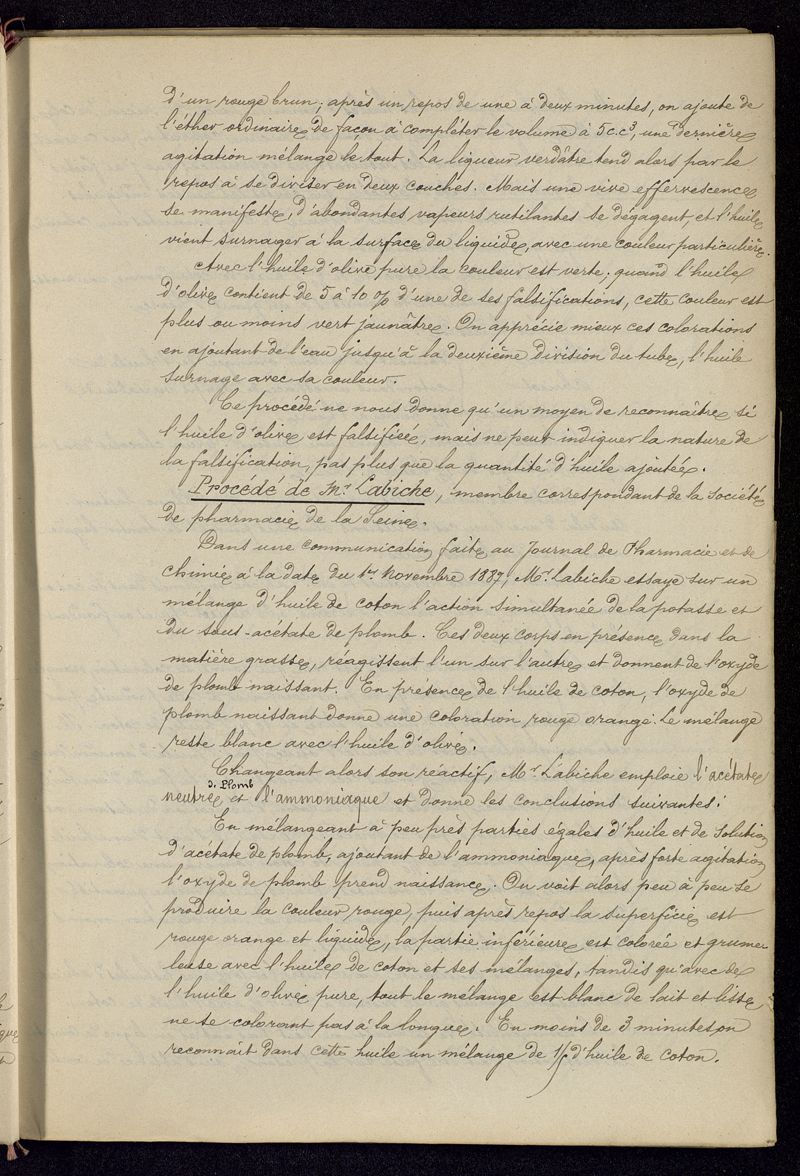 d'un rouge brun; après un repos de une à deux minutes, on ajoute de
l'éther ordinaire de façon à compléter le volume à 5 c.c³, une dernière
agitation mélange le tout. La liqueur verdâtre tend alors par le
repos à se diviser en deux couches. Mais une vive effervescence
se manifeste, d'abondantes vapeurs rutilantes se dégagent, et l'huile
vient surnager à la surface du liquide, avec une couleur particulière.
Avec l'huile d'olive pure la couleur est verte; quand l'huile
d'olive contient de 5 à 10 % d'une de ses falsifications, cette couleur est
plus ou moins vert jaunâtre. On apprécie mieux ces colorations
en ajoutant de l'eau jusqu'à la deuxième division du tube, l'huile
surnage avec sa couleur.
Ce procédé ne nous donne qu'un moyen de reconnaître si
l'huile d'olive est falsifiée, mais ne peut indiquer la nature de
la falsification, pas plus que la quantité d'huile ajoutée.
Procédé de Mr. Labiche, membre correspondant de la Société
de pharmacie de la Seine.
Dans une communication faite au Journal de Pharmacie et de
chimie à la date du 1er Novembre 1889, Mr. Labiche essaye sur un
mélange d'huile de coton l'action simultanée de la potasse et
du sous-acétate de plomb. Ces deux corps en présence dans la
matière grasse, réagissent l'un sur l'autre et donnent de l'oxyde
de plomb naissant. En présence de l'huile de coton, l'oxyde de
plomb naissant donne une coloration rouge orangé. Le mélange
reste blanc avec l'huile d'olive.
Changeant alors son réactif, Mr Labiche emploie l'acétate
d. Plomb
neutre et l'ammoniaque et donne les conclusions suivantes:
En mélangeant à peu près parties égales d'huile et de solution
d'acétate de plomb, ajoutant de l'ammoniaque, après forte agitation
l'oxyde de plomb prend naissance. On voit alors peu à peu se
produire la couleur rouge, puis après repos la superficie est
rouge orange et liquide, la partie inférieure est colorée et grume-
leuse avec l'huile de coton et ses mélanges, tandis qu'avec de
l'huile d'olive pure, tout le mélange est blanc de lait et lisse
ne se colorant pas à la longue. En moins de 3 minutes on
reconnait dans cette huile un mélange de 1/5 d'huile de coton.